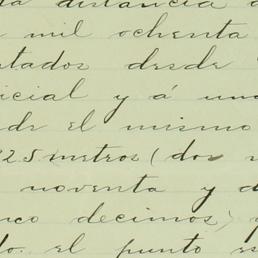 la distancia d
mil ochenta
ntados desde
icial y á una
de el mismo
225 metros (dos m
noventa y d
nco decimos) y
do. el punto es